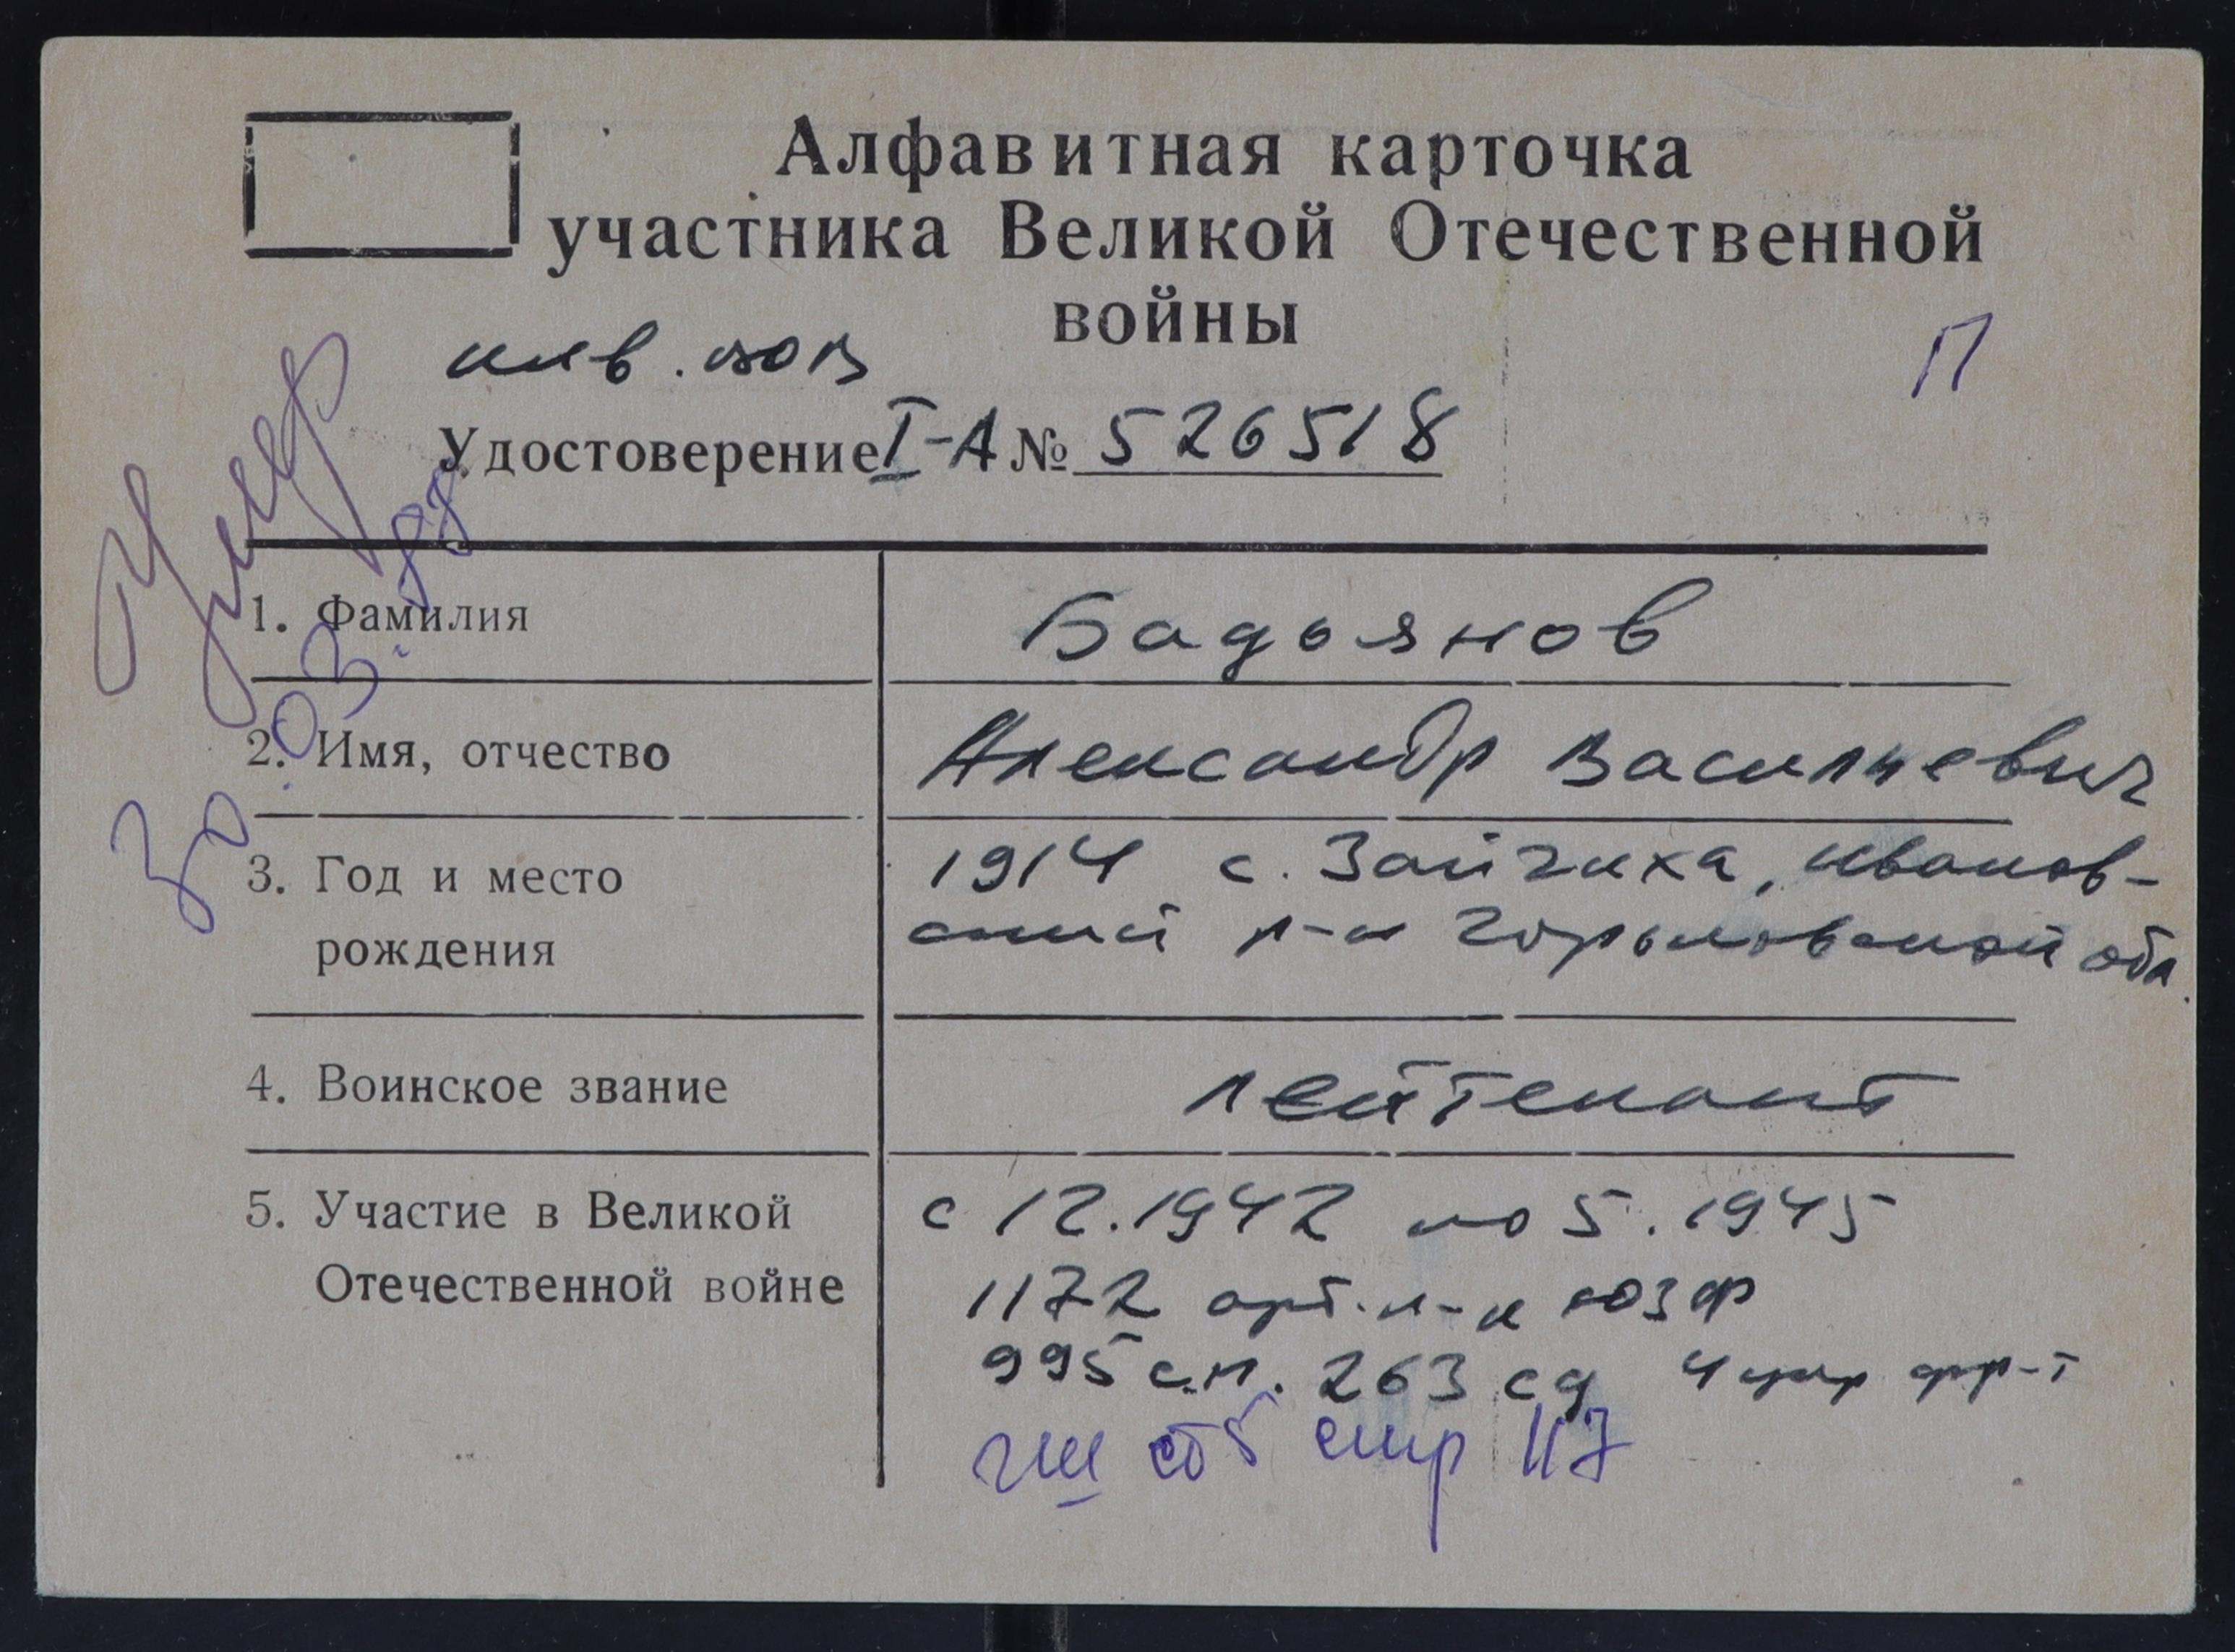 Алфавитная карточка
участника Великой Отечественной
войны
инв. вов
П
Удостоверение I-А № 526518
Умер
30.03.88
1. Фамилия
Бадьянов
2. Имя, отчество
Александр Васильевич
3. Год и место
рождения
1914 с. Зайчиха, Иванов-
ский р-н Горьковской обл.
4. Воинское звание
лейтенант
5. Участие в Великой
Отечественной войне
с 12.1942 по 5.1945
1172 арт. п-к ЮЗФ
995 с.п. 263 сд 4 укр фр-т
стр 117